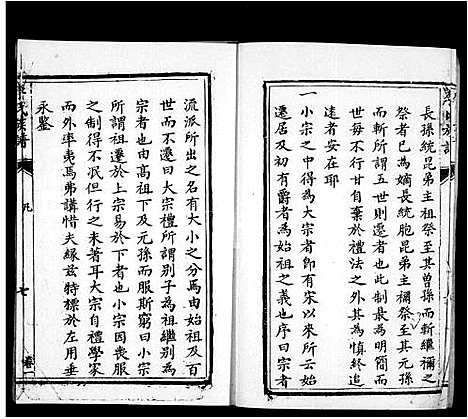 長孫統昆弟主祖祭至其曽孫而斬繼禰之
祭者已為嫡長統胞昆弟主禰祭至其元孫
而斬所謂五世則遷者也此制最簡而易行
世每不行甘自棄於禮法之外其慎終追
遠者安在耶
一小宗之為大宗者即有宋以來所云始
遷居有爵者為始祖之義也序曰宗者
流派所出之名有大小之分焉由始祖及百
世而不遷曰大宗禮所謂別子為祖繼別為
宗者也由髙祖下及元孫而服斯窮曰小宗
所謂祖遷於上宗易於下者也小宗因喪服
之制得不泯但行之未著耳大宗自禮學家
而外率夷焉弗講惜夫緣茲特標於首用垂
永鑒
氏族譜
凡
七